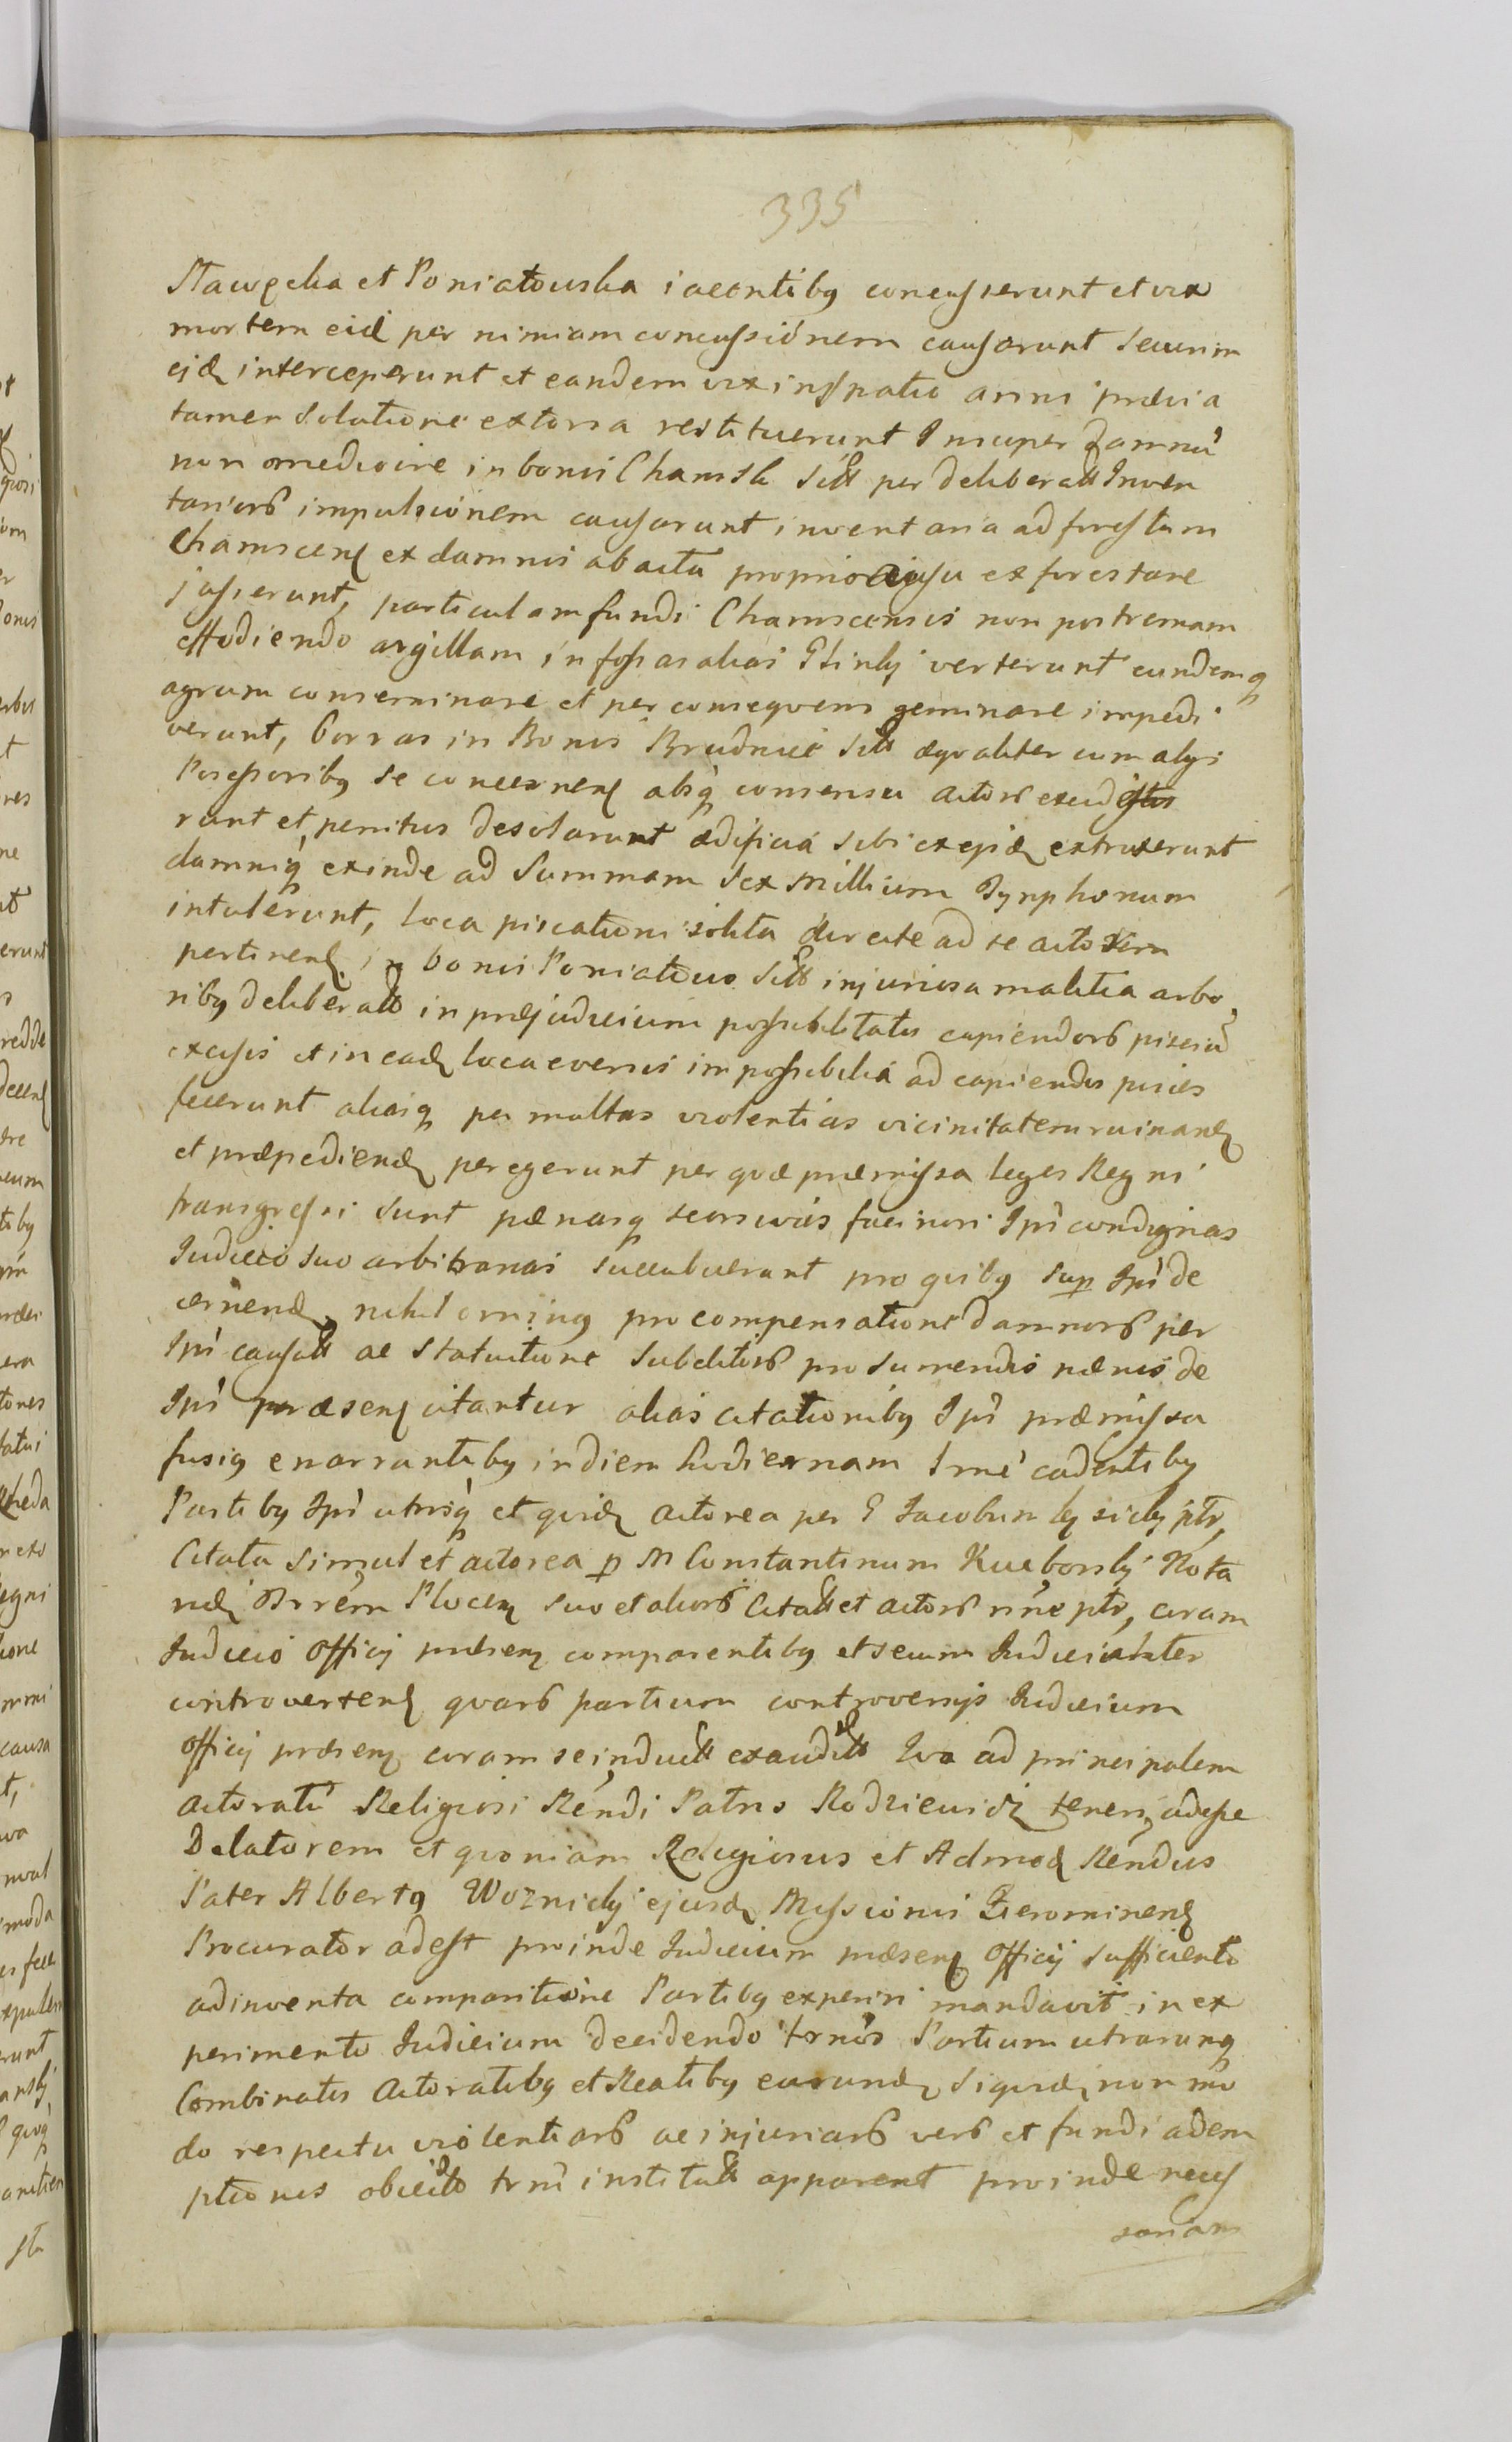 335
Stawęcka et Poniatowska iacentibq concusserunt et vix
mortem eid per nimiam concussionem causarunt Securim
ejd interceperunt et eandem vix in spatio anni prævia
tamen solutione extorsa restituerunt Insuper Damnū
non mediocre in bonis Chamsk sitt per deliberatt Inven
tariorb impulsionem causarunt inventaria ad forestum
Chamscens ex damnis abacta proprio ausu ex forestare
jusserunt, particulam fundi Chamscensis non postremam
effodiendo argillam in fossas alias Glinki verterunt eundemq
agrum conseminare et per consequens geminare impedi
verunt, Borras in Bonis Brudnice sitt æqvaliter cum alys
Possessoribq se concernens absq consensu actorb excid
runt et penitus desolarunt ædificia sibi ex ejsd extruxerunt
damniq exinde ad Summam Sex Millium Tynphonum
intulerunt, loca piscationi solita directe ad se actorem
pertinens in bonis Poniatowo sitt injuriosa malitia arbo
ribq deliberatt in præjudicium possibilitatis capiendorb pisciū
excisis et in ead loca eversis impossibilia ad capiendos pisces
fecerunt aliasq per multas violentias vicinitatem ruinand
et præpediend peregerunt per qvæ præmissa leges Regni
transgressi sunt pœnasq seorsivas facinori Ipī condignas
Judicio suo arbitrarias succubuerunt pro qvibq sup Ipī de
cernend nihilominq pro compensatione damnorb per
Ipī causatt ac statuitione subditorb pro sumendis pœnis de
Ipī præsens citantur alias citationibq Ipī præmissa
fusiq enarrantibq in diem hodiernam Trnē cadentibq
Partibq Ipī utrisq et qvid actorea per G Jacobum ptr,
Citata simul et actorea p M Constantinum Kuęborski Nota
ciū Trrēm Plocen suo et aliorb Citatt et actorb nīne ptr, coram
Judicio Officij præsens comparentibq et secum Judicialiter
controvertens qvarb partium controversijs Judicium
Officij præsens coram se inductt exauditt Ivo ad principalem
actoratū Religiosi Rēndi Patris Rodziewicz tenens adesse
Delatorem et qvoniam Religiosus et Admod Rēndus
Pater Albertq Woznicki ejusd Missionis Zierominens
Procurator adest proinde Judicium præsens Officij sufficienti
adinventa comparitione Partibq experiri mandavit in ex
perimento Judicium decidendo trnōs Partium utrarunq
Combinatis Actoratibq et Reatibq earund Siqvid non mo
do respectu violentiarb ac injuriarb verb et fundi adem
ptionis obiecto trnī institutt apparent proinde neces
sariam